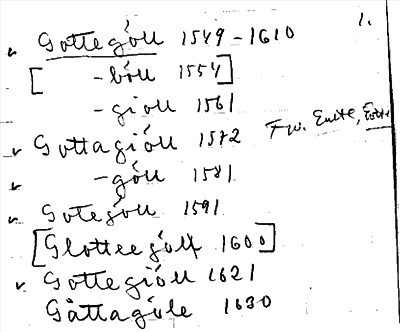 1.
Gottególl 1549-1610
[ -bóll 1554]
-gioll 1561
Gottagióll 1572
-góll 1581
Gotególl 1591
[Glottee góll 1600]
Gottegióll 1621
Gåttagóle 1630